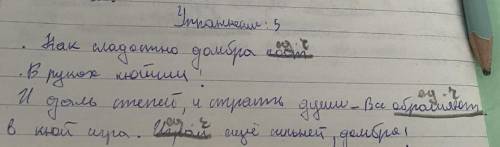 Упражнение: 5
. Как сладостно домбра поёт
од. г
. В руках кюйши!
И даль степей, и страсть души – Все обращают
од. г
в кюй игра. Играй ещё сильней, домбра!
од. г